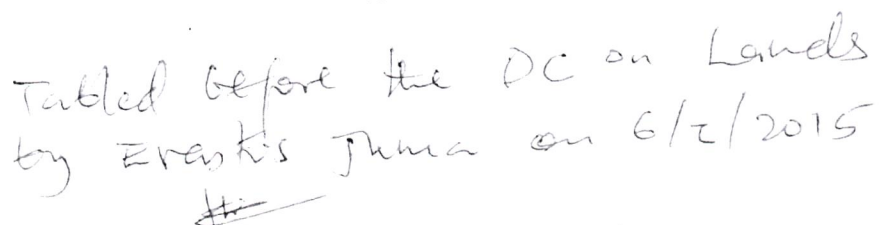 Tabled before the DC on Lands
by Erastus Juma on 6/2/2015